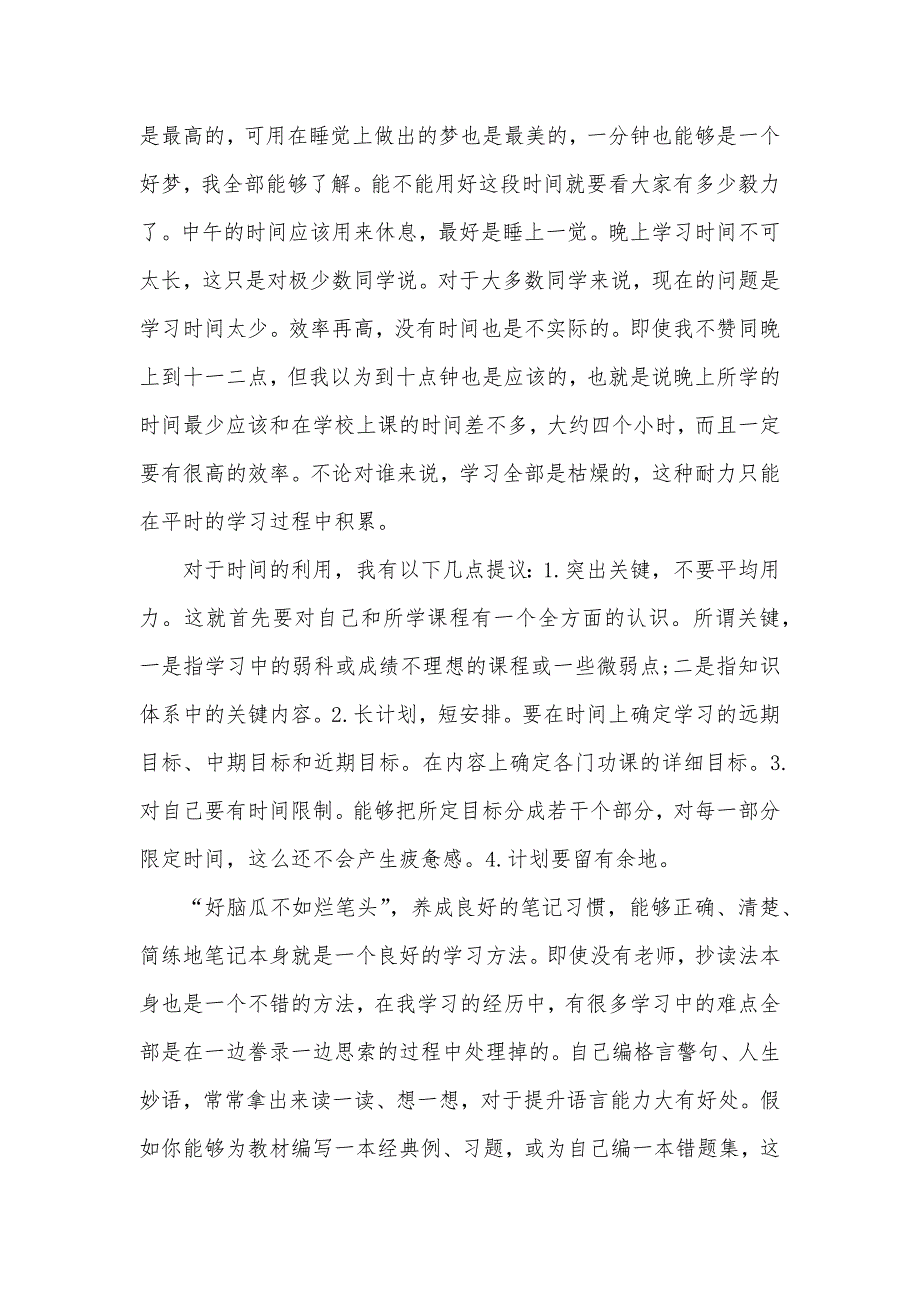 是最高的，可用在睡觉上做出的梦也是最美的，一分钟也能够是一个
好梦，我全部能够了解。能不能用好这段时间就要看大家有多少毅力
了。中午的时间应该用来休息，最好是睡上一觉。晚上学习时间不可
太长，这只是对极少数同学说。对于大多数同学来说，现在的问题是
学习时间太少。效率再高，没有时间也是不实际的。即使我不赞同晚
上到十一二点，但我以为到十点钟也是应该的，也就是说晚上所学的
时间最少应该和在学校上课的时间差不多，大约四个小时，而且一定
要有很高的效率。不论对谁来说，学习全部是枯燥的，这种耐力只能
在平时的学习过程中积累。
对于时间的利用，我有以下几点提议：1.突出关键，不要平均用
力。这就首先要对自己和所学课程有一个全方面的认识。所谓关键，
一是指学习中的弱科或成绩不理想的课程或一些微弱点;二是指知识
体系中的关键内容。2.长计划，短安排。要在时间上确定学习的远期
目标、中期目标和近期目标。在内容上确定各门功课的详细目标。3.
对自己要有时间限制。能够把所定目标分成若干个部分，对每一部分
限定时间，这么还不会产生疲惫感。4.计划要留有余地。
“好脑瓜不如烂笔头”，养成良好的笔记习惯，能够正确、清楚、
简练地笔记本身就是一个良好的学习方法。即使没有老师，抄读法本
身也是一个不错的方法，在我学习的经历中，有很多学习中的难点全
部是在一边誊录一边思索的过程中处理掉的。自己编格言警句、人生
妙语，常常拿出来读一读、想一想，对于提升语言能力大有好处。假
如你能够为教材编写一本经典例、习题，或为自己编一本错题集，这